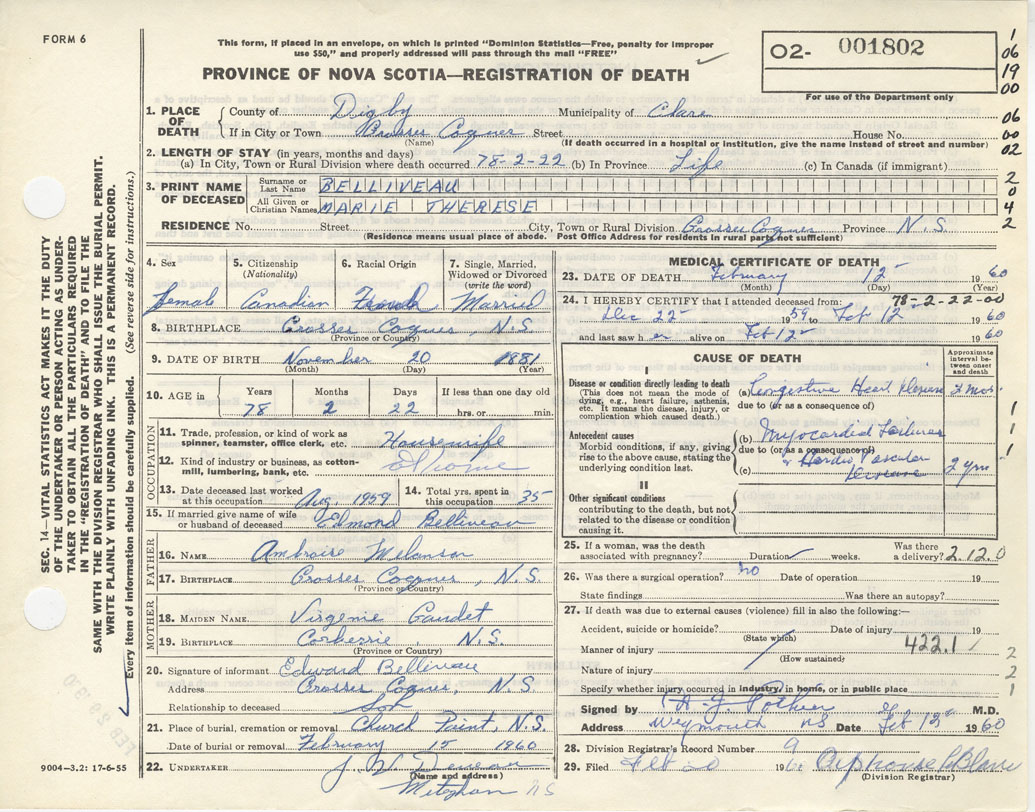 FORM 6
This form, if placed in an envelope, on which is printed "Dominion Statistics—Free, penalty for improper
use $50," and properly addressed will pass through the mail "FREE"
PROVINCE OF NOVA SCOTIA—REGISTRATION OF DEATH
O2- 001802
For use of the Department only
1
06
19
00
06
00
02
2
0
4
2
1. PLACE OF DEATH
County of Digby Municipality of Clare
If in City or Town Grosses Coques Street House No.
(Name) (If death occurred in a hospital or institution, give the name instead of street and number)
2. LENGTH OF STAY (in years, months and days)
(a) In City, Town or Rural Division where death occurred 78-2-22 (b) In Province Life (c) In Canada (if immigrant)
3. PRINT NAME OF DECEASED
Surname or Last Name BELLIVEAU
All Given or Christian Names MARIE THERESE
RESIDENCE No. Street City, Town or Rural Division Grosses Coques Province N.S.
(Residence means usual place of abode. Post Office Address for residents in rural parts not sufficient)
4. Sex
female
5. Citizenship (Nationality)
Canadian
6. Racial Origin
French
7. Single, Married, Widowed or Divorced (write the word)
Married
8. BIRTHPLACE Grosses Coques, N.S.
(Province or Country)
9. DATE OF BIRTH November 20 1881
(Month) (Day) (Year)
10. AGE in
Years Months Days If less than one day old
78 2 22 hrs. or min.
OCCUPATION
11. Trade, profession, or kind of work as spinner, teamster, office clerk, etc. Housewife
12. Kind of industry or business, as cotton-mill, lumbering, bank, etc. At home
13. Date deceased last worked at this occupation Aug 1959
14. Total yrs. spent in this occupation 35
15. If married give name of wife or husband of deceased Edmond Belliveau
FATHER
16. NAME Ambroise Melanson
17. BIRTHPLACE Grosses Coques, N.S.
(Province or Country)
MOTHER
18. MAIDEN NAME Virgenie Gaudet
19. BIRTHPLACE Corberrie, N.S.
(Province or Country)
20. Signature of informant Edward Belliveau
Address Grosses Coques, N.S.
Relationship to deceased Son
21. Place of burial, cremation or removal Church Point, N.S.
Date of burial or removal February 15 1960
22. UNDERTAKER
(Name and address)
Meteghan NS
MEDICAL CERTIFICATE OF DEATH
23. DATE OF DEATH February 12 1960
(Month) (Day)
24. I HEREBY CERTIFY that I attended deceased from: 78-2-22-00
Dec 22 1959 to Feb 12 1960
and last saw her alive on Feb 12 1960
CAUSE OF DEATH
Approximate interval between onset and death
I
Disease or condition directly leading to death
(This does not mean the mode of dying, e.g., heart failure, asthenia, etc. It means the disease, injury, or complication which caused death.)
(a) Congestive Heart 2 mos.
due to (or as a consequence of)
Antecedent causes
Morbid conditions, if any, giving rise to the above cause, stating the underlying condition last.
(b) Myocardial Failure
due to (or as a consequence of)
(c) Cardio Vascular Disease 2 yrs
1
1
1
1
II
Other significant conditions contributing to the death, but not related to the disease or condition causing it.
25. If a woman, was the death associated with pregnancy? Duration weeks. Was there a delivery? 2.12.0
26. Was there a surgical operation? no Date of operation 19
State findings Was there an autopsy?
27. If death was due to external causes (violence) fill in also the following:—
Accident, suicide or homicide? Date of injury 19
(State which)
Manner of injury 422.1
(How sustained)
Nature of injury
Specify whether injury occurred in industry, in home, or in public place
2
2
1
Signed by A. J. Pothier M.D.
Address Weymouth NS Date Feb 12 1960
28. Division Registrar's Record Number 9
29. Filed Feb 20 196 Alphonse LeBlanc
(Division Registrar)
SEC. 14—VITAL STATISTICS ACT MAKES IT THE DUTY
OF THE UNDERTAKER OR PERSON ACTING AS UNDER-
TAKER TO OBTAIN ALL THE PARTICULARS REQUIRED
IN THE "REGISTRATION OF DEATH" AND TO FILE THE
SAME WITH THE DIVISION REGISTRAR WHO SHALL ISSUE THE BURIAL PERMIT.
WRITE PLAINLY WITH UNFADING INK. THIS IS A PERMANENT RECORD.
Every item of information should be carefully supplied. (See reverse side for instructions.)
9004—3.2: 17-6-55